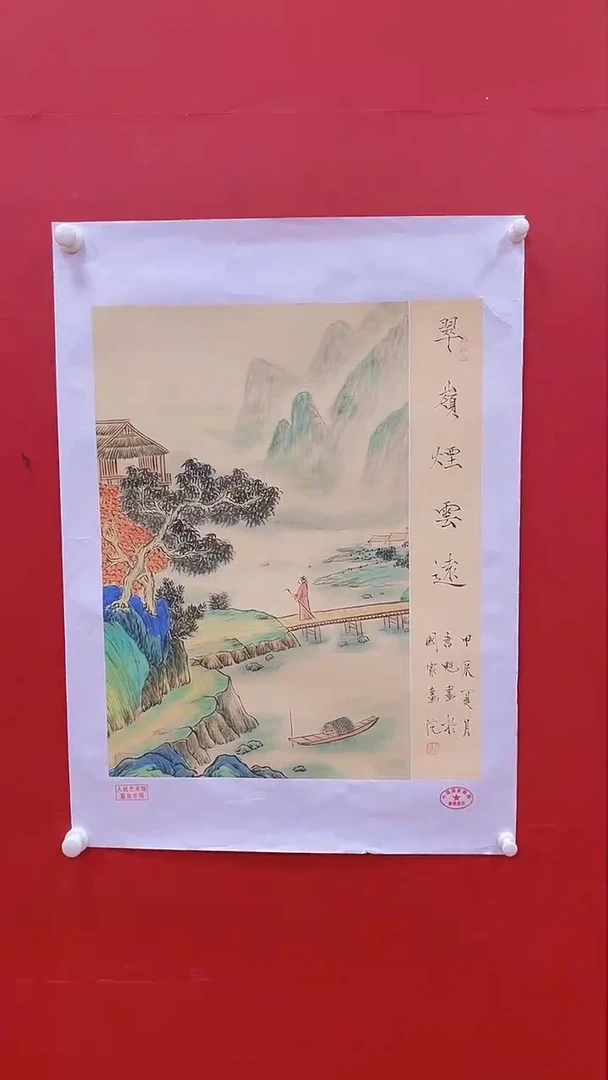 翠嶺煙雲遠
甲辰夏月
畫於
國家畫院
人民艺术馆
鉴定专用